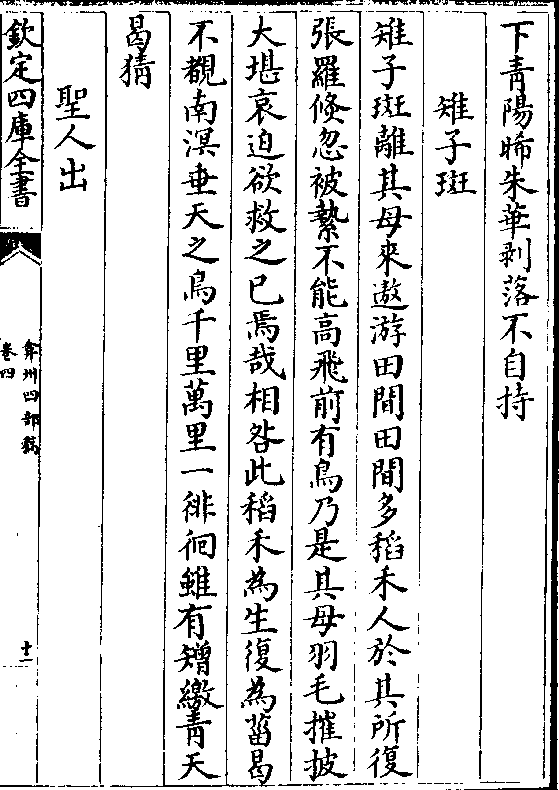 下青陽晞朱華剥落不自持
雉子斑
雉子斑離其母來遨游田間田間多稻禾人於其所復
張羅倏忽被縶不能高飛前有鳥乃是其母羽毛摧披
大堪哀迫欲救之已焉哉相咎此稻禾為生復為葘曷
不覩南溟垂天之鳥千里萬里一徘徊雖有矰繳青天
曷猜
聖人出
欽定四庫全書
弇州四部稿
卷四
十一